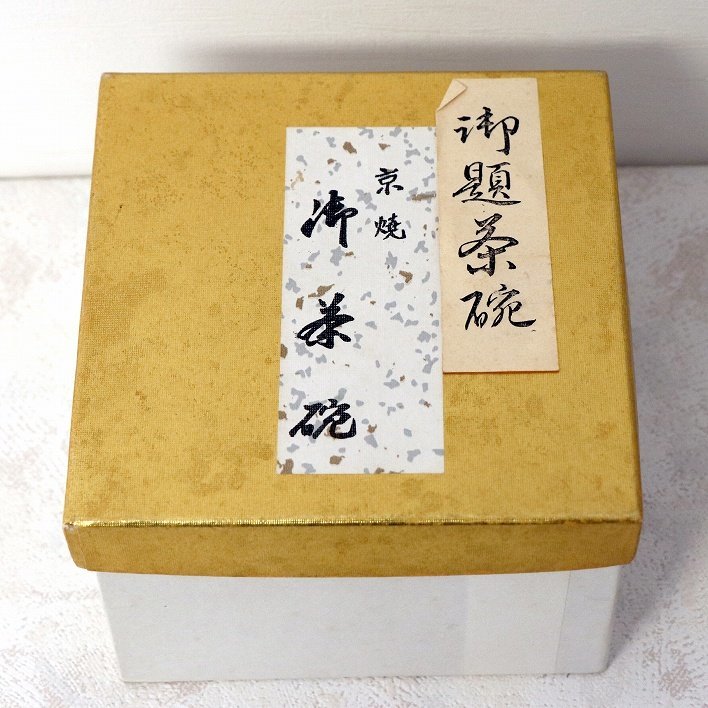 御題茶碗
京焼
御茶碗